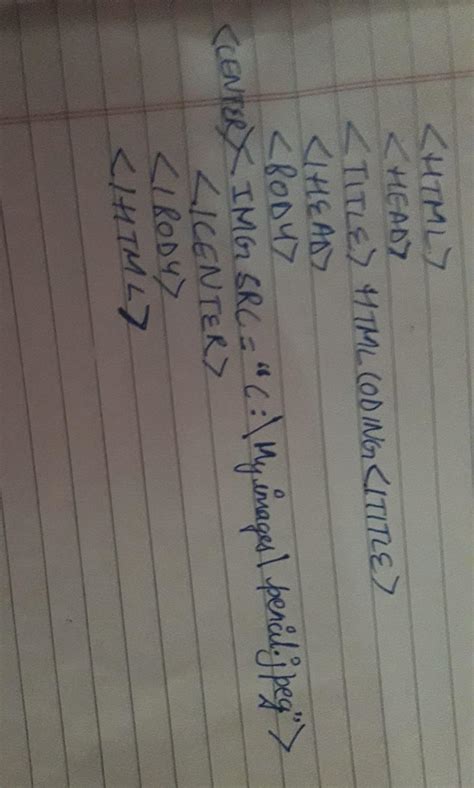 <HTML>
<HEAD>
<TITLE> HTML CODING</TITLE>
</HEAD>
<BODY>
<CENTER><IMG SRC="C:\My images\pencil.jpeg">
</CENTER>
</BODY>
</HTML>